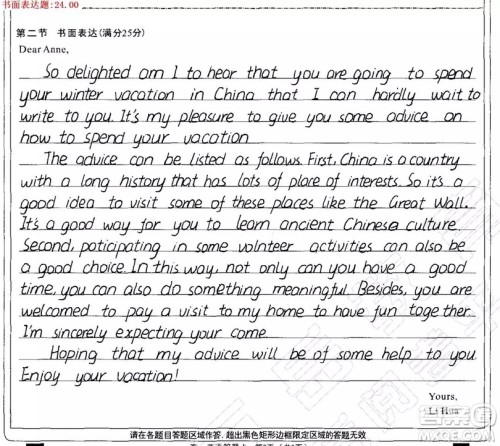 书面表达题:24.00
第二节 书面表达(满分25分)
Dear Anne,
So delighted am I to hear that you are going to spend
your winter vacation in China that I can hardly wait to
write to you. It's my pleasure to give you some advice on
how to spend your vacation
The advice can be listed as follows. First, China is a country
with a long history that has lots of place of interests. So it's a
good idea to visit some of these places like the Great Wall.
It's a good way for you to learn ancient Chinese culture.
Second, paticipating in some volnteer activities can also be
a good choice. In this way, not only can you have a good
time, you can also do something meaningful. Besides, you are
welcomed to pay a visit to my home to have fun together.
I'm sincerely expecting your come.
Hoping that my advice will be of some help to you
Enjoy your vacation!
Yours,
Li Hua
请在各题目答题区域作答, 超出黑色矩形边框限定区域的答题无效